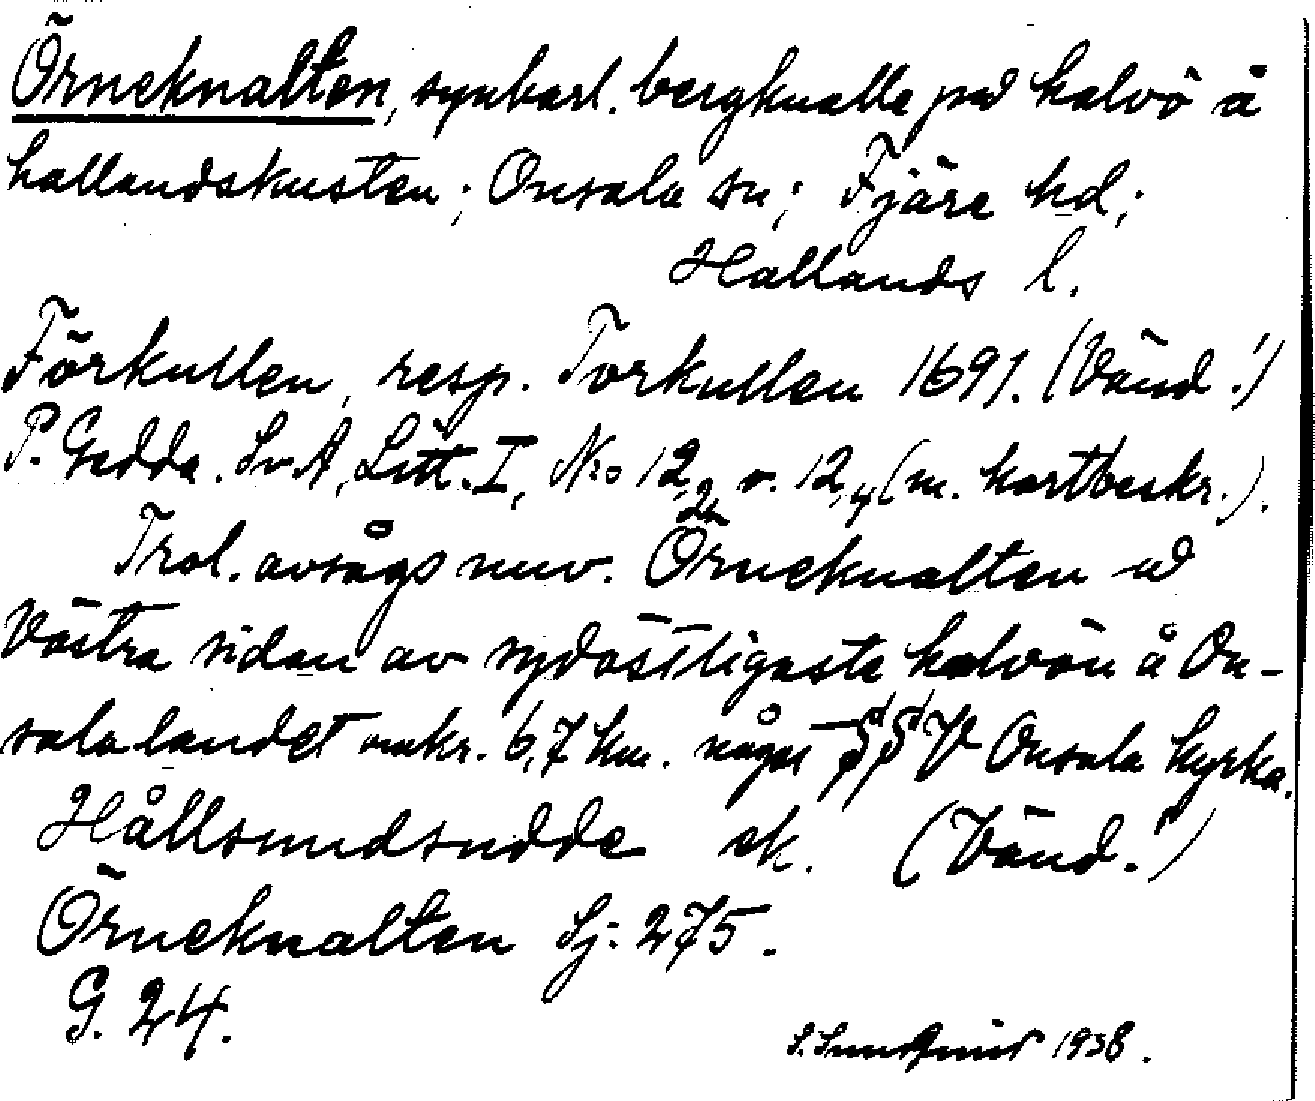 Örneknalten, synbarl. bergknalle på halvö å
hallandskusten; Onsala sn; Fjäre hd;
Hallands l.
Förkullen, resp. Torkullen 1691. (Vänd!)
P. Gedda. SvA, Litt. I, No 12,2 o. 12,4 (m. kartbeskr.).
Trol. avsågs nuv. Örneknalten på
Västra sidan av sydöstligaste halvön å On-
salalandet omkr. 6,7 km. något SSV Onsala kyrka.
Hållsundsudde ek. (Vänd!)
Örneknalten Sj: 275.
G. 24.
S. Sundqvist 1938.